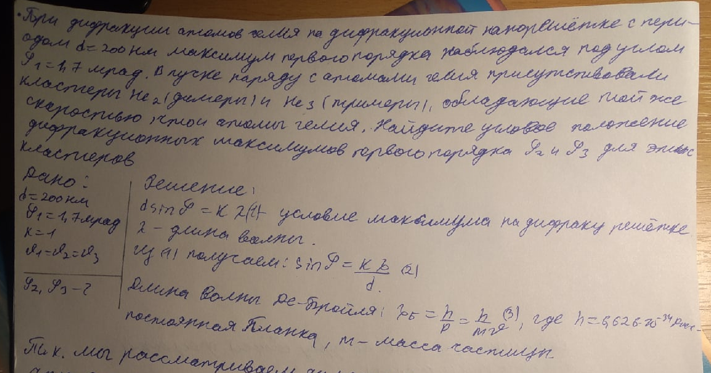 При дифракции атомов гелия на дифракционной нанорешётке с пери-
одом d = 200 нм максимум первого порядка наблюдался под углом
φ₁ = 1,7 мрад. В пучке наряду с атомами гелия присутствовали
кластеры He₂ (димеры) и He₃ (тримеры), обладающие той же
скоростью, что и атомы гелия. Найдите угловое положение
дифракционных максимумов первого порядка φ₂ и φ₃ для этих
кластеров
Дано:
d = 200 нм
φ₁ = 1,7 мрад
k = 1
υ₁ = υ₂ = υ₃
φ₂, φ₃ - ?
Решение:
d sin φ = k λ (1) - условие максимума на дифракц решётке
λ - длина волны.
Из (1) получаем: sin φ = kλ/d (2)
Длина волны Де-Бройля: λ = h/p = h/mυ (3), где h = 6,626·10⁻³⁴
постоянная Планка, m - масса частицы.
Т.к. мы рассматриваем